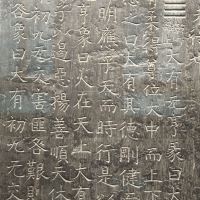 大有元亨彖曰大
柔得尊位大中而上下
之曰大有其德剛健而
明應乎天而時行是以
亨象曰火在天上大有
子以遏惡揚善順天休
初九无交害匪咎艱則
咎象曰大有初九无交